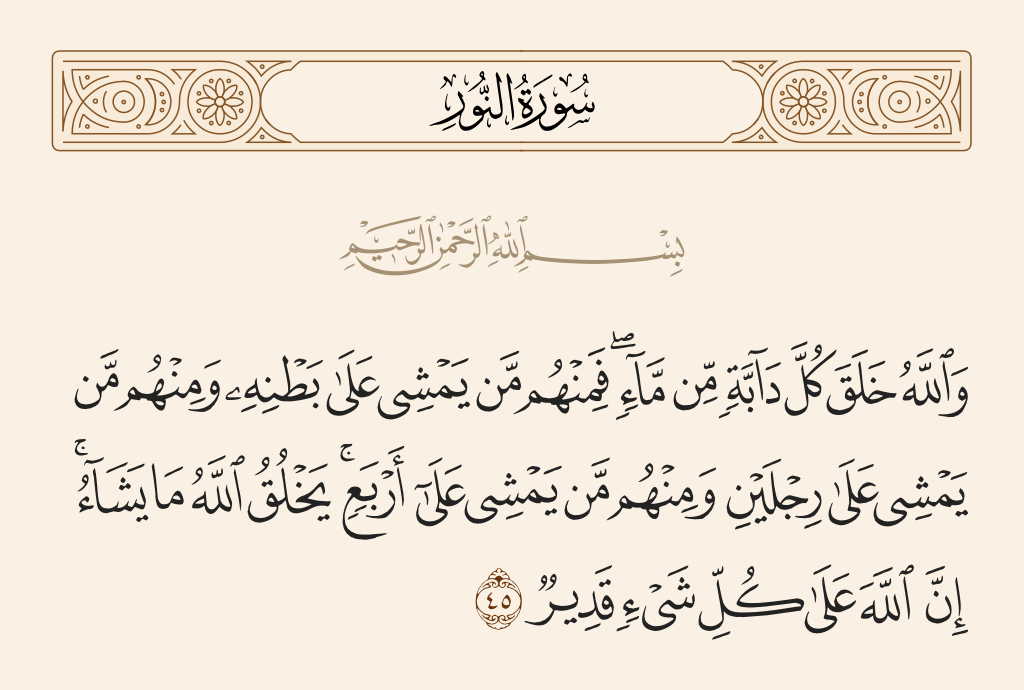 سُورَةُ النُّورِ
بِسْمِ ٱللَّهِ ٱلرَّحْمَٰنِ ٱلرَّحِيمِ
وَٱللَّهُ خَلَقَ كُلَّ دَآبَّةٍ مِّن مَّآءٍ ۖ فَمِنْهُم مَّن يَمْشِى عَلَىٰ بَطْنِهِۦ وَمِنْهُم مَّن
يَمْشِى عَلَىٰ رِجْلَيْنِ وَمِنْهُم مَّن يَمْشِى عَلَىٰٓ أَرْبَعٍ ۚ يَخْلُقُ ٱللَّهُ مَا يَشَآءُ ۚ
إِنَّ ٱللَّهَ عَلَىٰ كُلِّ شَىْءٍ قَدِيرٌ ٤٥